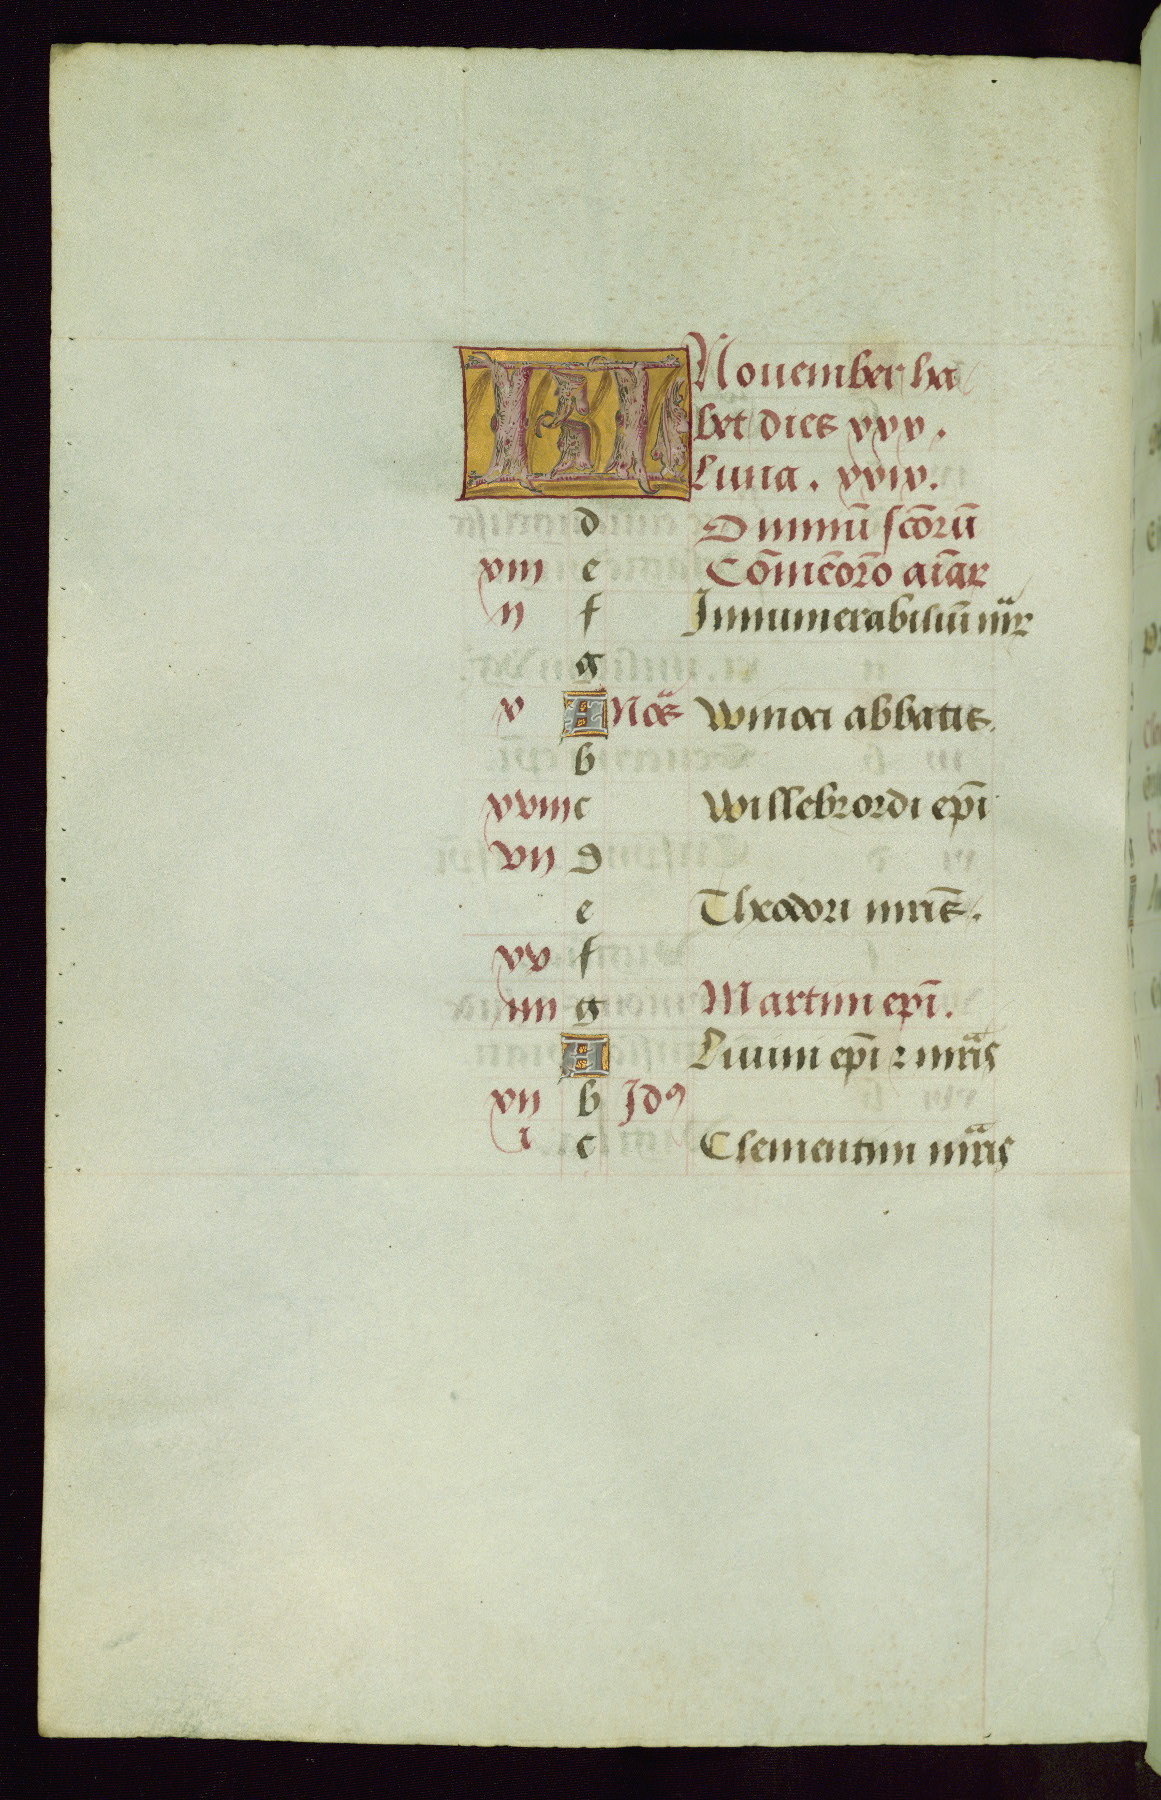 KL Nouember ha
bet dies xxx.
Luna. xxix.
d Omniū scōrū
xiii e Cōmēorō aīar
ii f Innumerabiliū mr̄
g
x A Noās Winoci abbatis.
b
xviii c Willebrordi ep̄i
vii d
e Theodori mrīs.
xv f
iiii g Martini ep̄i.
A Liuini ep̄i ⁊ mr̄is
xii b Idꝰ
i c Clementini mr̄is